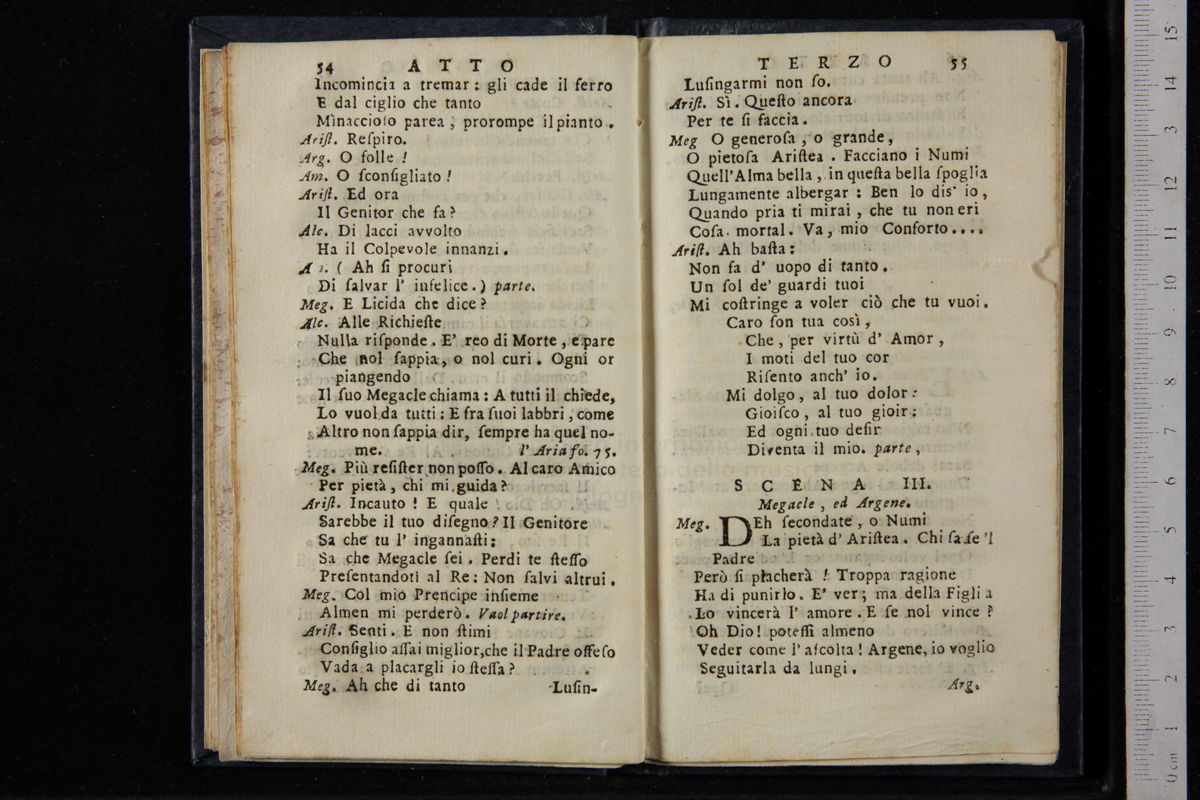 54 ATTO
Incomincia a tremar : gli cade il ferro
E dal ciglio che tanto
Minaccioso parea , prorompe il pianto .
Ariſt. Reſpiro.
Arg. O folle !
Am. O ſconſigliato !
Ariſt. Ed ora
Il Genitor che fa ?
Alc. Di lacci avvolto
Ha il Colpevole innanzi .
A 2. ( Ah ſi procuri
Di ſalvar l' infelice . ) parte.
Meg. E Licida che dice ?
Alc. Alle Richieſte
Nulla riſponde . E' reo di Morte , e pare
Che nol ſappia , o nol curi . Ogni or
piangendo
Il ſuo Megacle chiama : A tutti il chiede,
Lo vuol da tutti : E fra ſuoi labbri , come
Altro non ſappia dir, ſempre ha quel no-
me. l' Aria fo. 75.
Meg. Più reſiſter non poſſo . Al caro Amico
Per pietà , chi mi guida ?
Ariſt. Incauto ! E quale
Sarebbe il tuo diſegno ? Il Genitore
Sa che tu l' ingannaſti :
Sa che Megacle ſei . Perdi te ſteſſo
Preſentandoti al Re : Non ſalvi altrui .
Meg. Col mio Prencipe inſieme
Almen mi perderò . Vuol partire.
Ariſt. Senti . E non ſtimi
Conſiglio aſſai miglior,che il Padre offeſo
Vada a placargli io ſteſſa ?
Meg. Ah che di tanto Luſin-
TERZO 55
Luſingarmi non ſo.
Ariſt. Sì . Queſto ancora
Per te ſi faccia .
Meg O generoſa , o grande ,
O pietoſa Ariſtea . Facciano i Numi
Quell'Alma bella , in queſta bella ſpoglia
Lungamente albergar : Ben lo dis' io ,
Quando pria ti mirai , che tu non eri
Coſa mortal . Va , mio Conforto ....
Ariſt. Ah baſta :
Non fa d' uopo di tanto .
Un ſol de' guardi tuoi
Mi coſtringe a voler ciò che tu vuoi .
Caro ſon tua così ,
Che , per virtù d' Amor ,
I moti del tuo cor
Riſento anch' io.
Mi dolgo , al tuo dolor :
Gioiſco , al tuo gioir ;
Ed ogni tuo deſir
Diventa il mio. parte ,
SCENA III.
Megacle , ed Argene.
Meg. DEh ſecondate , o Numi
La pietà d' Ariſtea . Chi ſa ſe 'l
Padre
Però ſi placherà ! Troppa ragione
Ha di punirlo . E' ver ; ma della Figlia
Lo vincerà l' amore . E ſe nol vince ?
Oh Dio ! poteſſi almeno
Veder come l' aſcolta ! Argene, io voglio
Seguitarla da lungi .
Arg.
15
14
13
12
11
10
9
8
7
6
5
4
3
2
1
0 cm